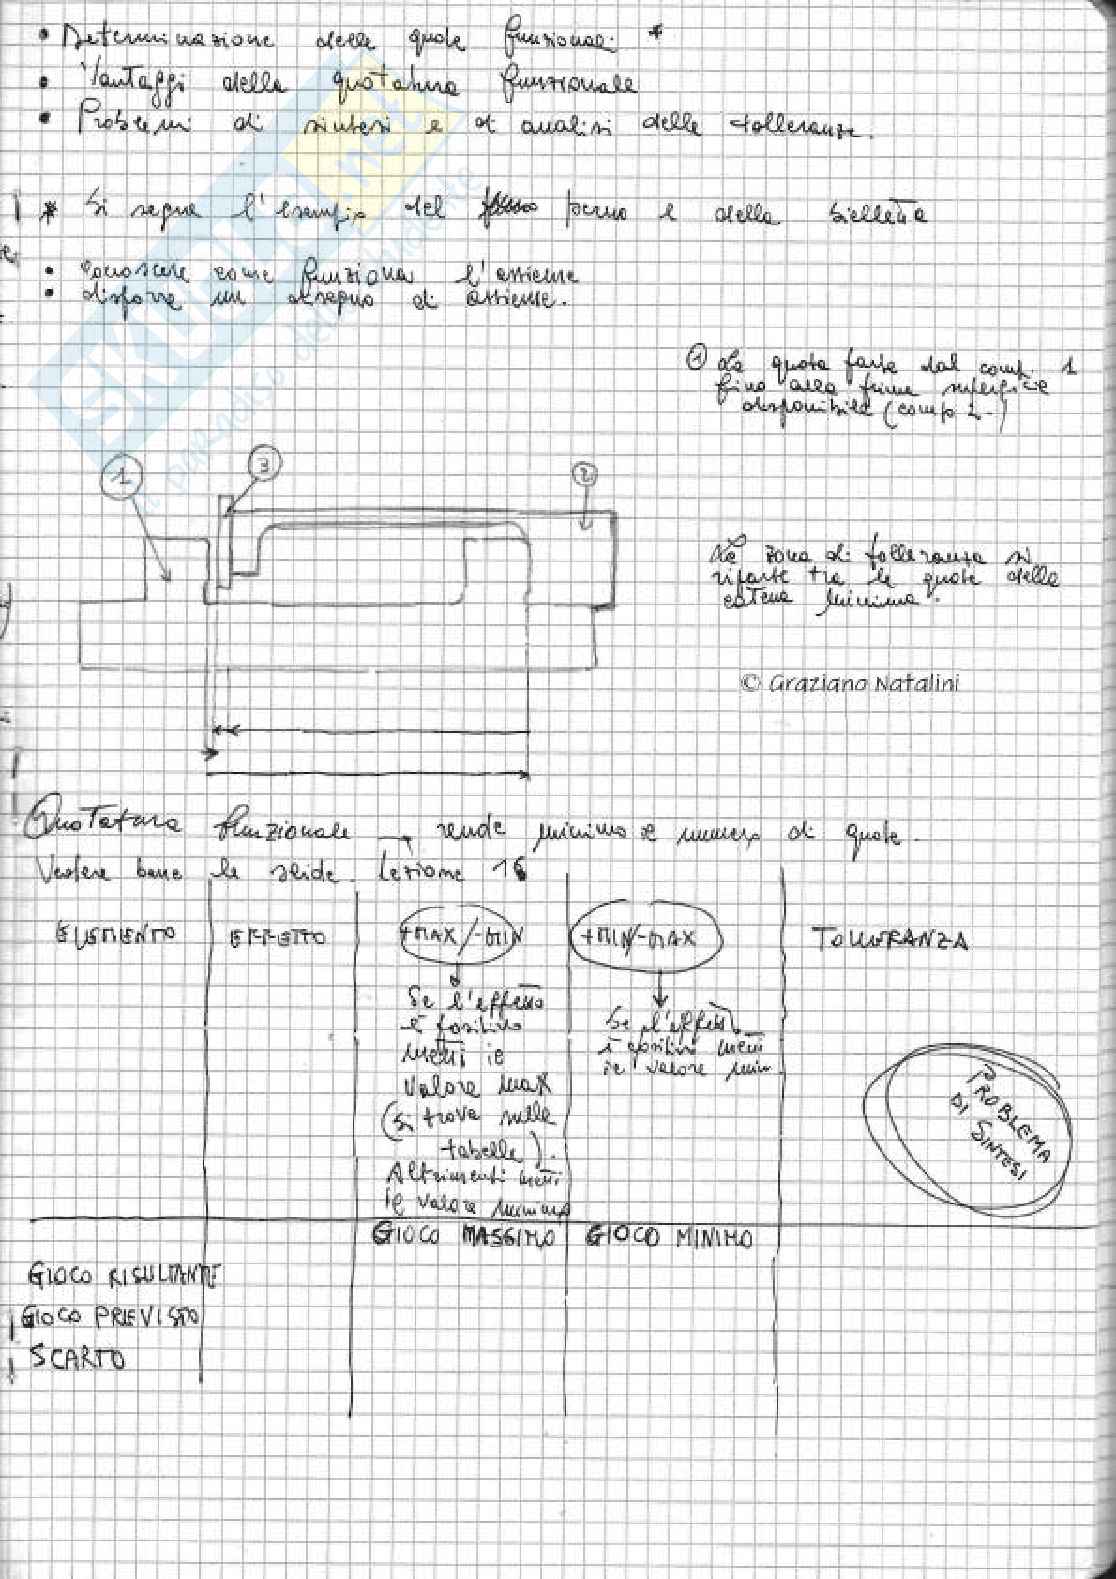 • Determinazione delle quote funzionali *
• Vantaggi della quotatura funzionale
• Problemi di sintesi e di analisi delle tolleranze.
* Si segue l'esempio del perno e della bielletta
• conoscere come funziona l'assieme
• disporre un disegno di assieme.
① La quota parte dal comp. 1
fino alla prima superficie
disponibile (comp 2.)
1
3
2
La zona di tolleranza si
riparte tra le quote della
catena minima.
© Graziano Natalini
Quotatura funzionale → rende minimo il numero di quote.
Vedere bene le slide. Lezione 16
ELEMENTO EFFETTO +MAX/-MIN +MIN/-MAX TOLLERANZA
Se l'effetto
è positivo
metti il
valore max
(si trova sulle
tabelle).
Altrimenti metti
il valore minimo
Se l'effetto
è positivo metti
il valore min
PROBLEMA
DI SINTESI
GIOCO MASSIMO GIOCO MINIMO
GIOCO RISULTANTE
GIOCO PREVISTO
SCARTO
SKUOLA.net
il paradiso dello studente